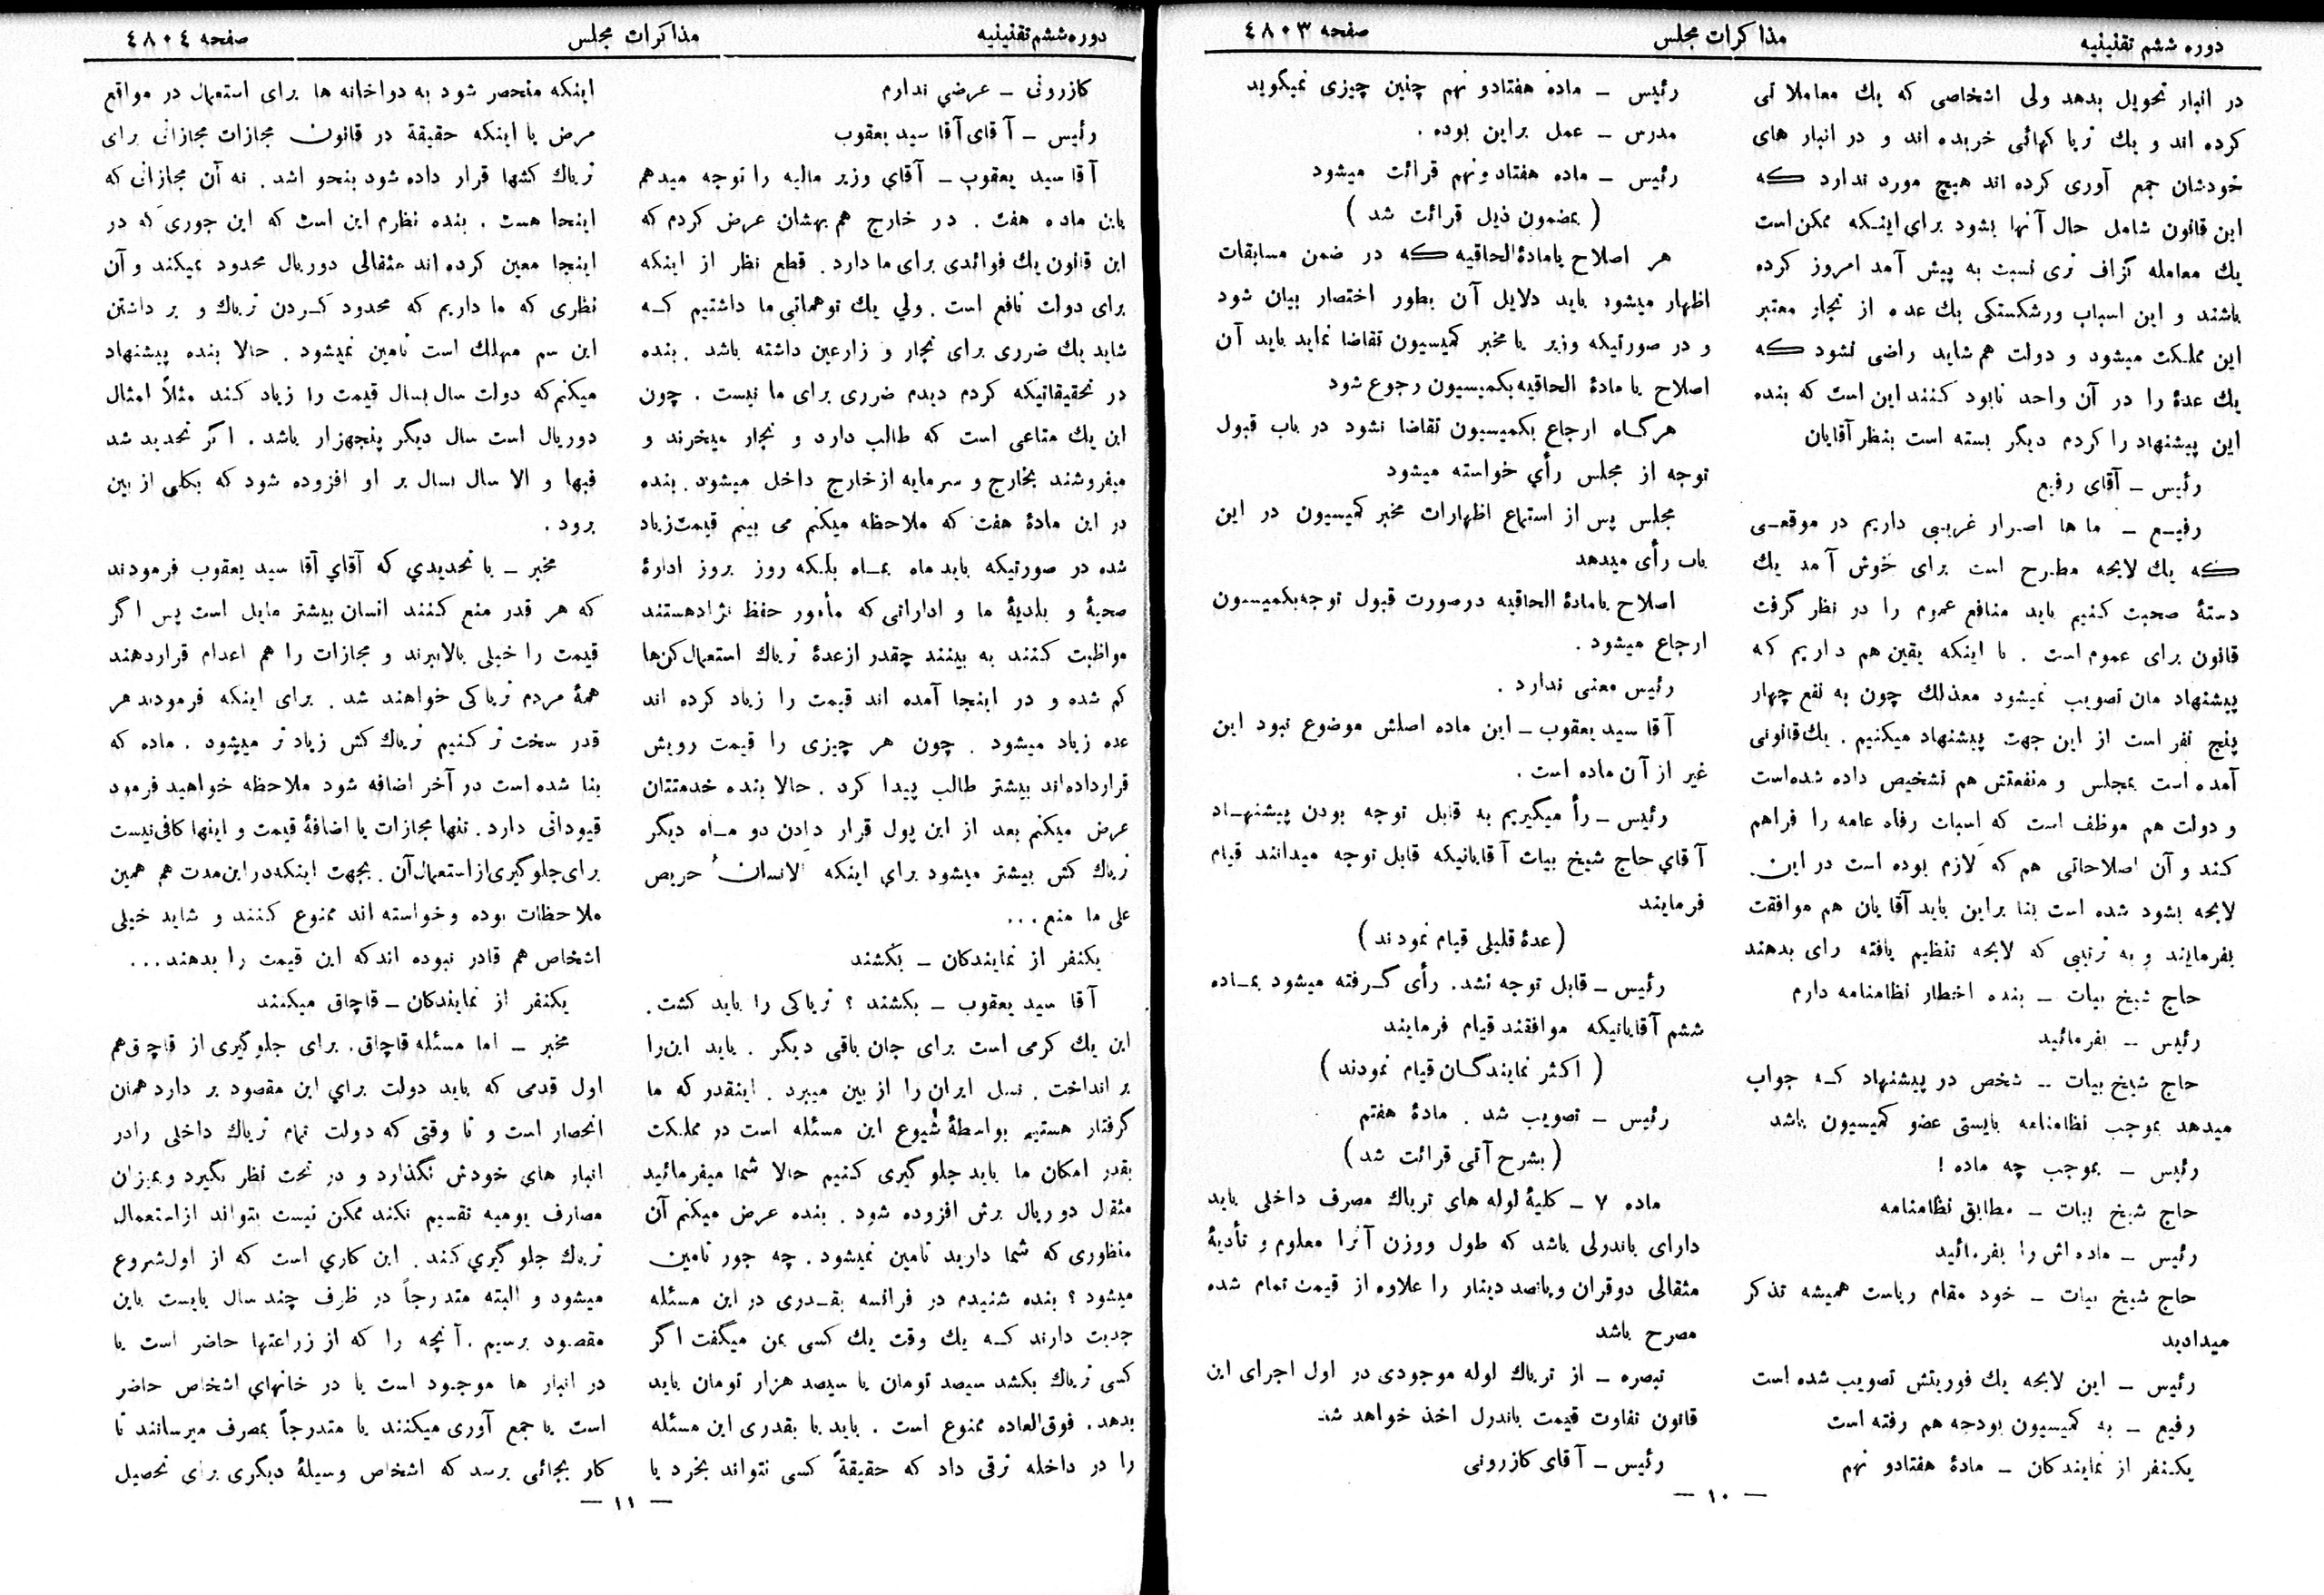 دوره ششم تقنینیه
مذاکرات مجلس
صفحه ٤٨٠٣
در انبار تحویل بدهد ولی اشخاصی که یك معاملاتی
کرده اند و یك تریاکهائی خریده اند و در انبار های
خودشان جمع آوری کرده اند هیچ مورد ندارد که
این قانون شامل حال آنها بشود برای اینکه ممکن است
یك معامله گزاف تری نسبت به پیش آمد امروز کرده
باشند و این اسباب ورشکستکی یك عده از تجار معتبر
این مملکت میشود و دولت هم شاید راضی نشود که
یك عدهٔ را در آن واحد نابود کنند این است که بنده
این پیشنهاد را کردم دیگر بسته است بنظر آقایان
رئیس ــ آقای رفیع
رفیع ــ ما ها اصرار غریبی داریم در موقعی
که یك لایحه مطرح است برای خوش آمد یك
دستهٔ صحبت کنیم باید منافع عموم را در نظر گرفت
قانون برای عموم است . با اینکه یقین هم داریم که
پیشنهاد مان تصویب نمیشود معذلك چون به نفع چهار
پنج نفر است از این جهت پیشنهاد میکنیم . یك قانونی
آمده است بمجلس و منفعتش هم تشخیص داده شده است
و دولت هم موظف است که اسبات رفاه عامه را فراهم
کند و آن اصلاحاتی هم که لازم بوده است در این
لایحه بشود شده است بنا براین باید آقایان هم موافقت
بفرمایند و به ترتیبی که لایحه تنظیم یافته رای بدهند
حاج شیخ بیات ــ بنده اخطار نظامنامه دارم
رئیس ــ بفرمائید
حاج شیخ بیات ــ شخص در پیشنهاد که جواب
میدهد بموجب نظامنامه بایستی عضو کمیسیون باشد
رئیس ــ بموجب چه ماده !
حاج شیخ بیات ــ مطابق نظامنامه
رئیس ــ ماده اش را بفرمائید
حاج شیخ بیات ــ خود مقام ریاست همیشه تذکر
میدادید
رئیس ــ این لایحه یك فوریتش تصویب شده است
رفیع ــ به کمیسیون بودجه هم رفته است
یکنفر از نمایندکان ــ مادهٔ هفتادو نهم
رئیس ــ مادهٔ هفتادو نهم چنین چیزی نمیگوید
مدرس ــ عمل براین بوده .
رئیس ــ ماده هفتاد ونهم قرائت میشود
( بمضمون ذیل قرائت شد )
هر اصلاح یامادهٔ الحاقیه که در ضمن مسابقات
اظهار میشود باید دلایل آن بطور اختصار بیان شود
و در صورتیکه وزیر یا مخبر کمیسیون تقاضا نماید باید آن
اصلاح یا مادهٔ الحاقیه بکمیسیون رجوع شود
هرگاه ارجاع بکمیسیون تقاضا نشود در باب قبول
توجه از مجلس رأی خواسته میشود
مجلس پس از استماع اظهارات مخبر کمیسیون در این
باب رأی میدهد
اصلاح یامادهٔ الحاقیه درصورت قبول توجه بکمیسیون
ارجاع میشود .
رئیس معنی ندارد .
آقا سید یعقوب ــ این ماده اصلش موضوع نبود این
غیر از آن ماده است .
رئیس ــ رأ میگیریم به قابل توجه بودن پیشنهاد
آقاي حاج شیخ بیات آقایانیکه قابل توجه میدانند قیام
فرمایند
( عدهٔ قلیلی قیام نمودند )
رئیس ــ قابل توجه نشد . رأی گرفته میشود بماده
ششم آقایانیکه موافقند قیام فرمایند
( اکثر نمایندگان قیام نمودند )
رئیس ــ تصویب شد . مادهٔ هفتم
( بشرح آتی قرائت شد )
ماده ۷ ــ کلیهٔ لوله های تریاك مصرف داخلی باید
دارای باندرلی باشد که طول ووزن آنرا معلوم و تأدیهٔ
مثقالی دوقران وپانصد دینار را علاوه از قیمت تمام شده
مصرح باشد
تبصره ــ از تریاك لوله موجودی در اول اجرای این
قانون تفاوت قیمت باندرل اخذ خواهد شد
رئیس ــ آقای کازرونی
ــ ۱۰ ــ
دوره ششم تقنینیه
مذاکرات مجلس
صفحه ٤٨٠٤
کازرونی ــ عرضي ندارم
رئیس ــ آقای آقا سید یعقوب
آقا سید یعقوب ــ آقاي وزیر مالیه را توجه میدهم
باین ماده هفت . در خارج هم بهشان عرض کردم که
این قانون یك فوائدی برای ما دارد . قطع نظر از اینکه
برای دولت نافع است . ولي یك توهماتی ما داشتیم که
شاید یك ضرری برای تجار و زارعین داشته باشد . بنده
در تحقیقاتیکه کردم دیدم ضرری برای ما نیست . چون
این یك متاعی است که طالب دارد و تجار میخرند و
میفروشند بخارج و سرمایه از خارج داخل میشود . بنده
در این مادهٔ هفت که ملاحظه میکنم می بینم قیمت زیاد
شده در صورتیکه باید ماه بماه بلکه روز بروز ادارهٔ
صحیهٔ و بلدیهٔ ما و اداراتی که مأمور حفظ نژادهستند
مواظبت کنند به بینند چقدر از عدهٔ تریاك استعمال کن‌ها
کم شده و در اینجا آمده اند قیمت را زیاد کرده اند
عده زیاد میشود . چون هر چیزی را قیمت رویش
قرارداده اند بیشتر طالب پیدا کرد . حالا بنده خدمتتان
عرض میکنم بعد از این پول قرار دادن دو ماه دیگر
تریاك کش بیشتر میشود براي اینکه الانسانُ حریص
علی ما منع ...
یکنفر از نمایندکان ــ بکشند
آقا سید یعقوب ــ بکشند ؟ تریاکی را باید کشت .
این یك کرمی است برای جان باقی دیگر . باید این را
بر انداخت . نسل ایران را از بین میبرد . اینقدر که ما
گرفتار هستیم بواسطهٔ شیوع این مسئله است در مملکت
بقدر امکان ما باید جلو گیری کنیم حالا شما میفرمائید
مثقال دو ریال برش افزوده شود . بنده عرض میکنم آن
منظوری که شما دارید تامین نمیشود . چه جور تامین
میشود ؟ بنده شنیدم در فرانسه بقدری در این مسئله
جدیت دارند که یك وقت یك کسی بمن میگفت اگر
کسی تریاك بکشد سیصد تومان یا سیصد هزار تومان باید
بدهد . فوق‌العاده ممنوع است . باید یا بقدری این مسئله
را در داخله ترقی داد که حقیقةً کسی نتواند بخرد یا
اینکه منحصر شود به دواخانه ها برای استعمال در مواقع
مرض یا اینکه حقیقة در قانون مجازات مجازاتی برای
تریاك کشها قرار داده شود بنحو اشد . نه آن مجازاتی که
اینجا هست . بنده نظرم این است که این جوری که در
اینجا معین کرده اند مثقالی دوریال محدود نمیکند و آن
نظری که ما داریم که محدود کردن تریاك و بر داشتن
این سم مهلك است تامین نمیشود . حالا بنده پیشنهاد
میکنم که دولت سال بسال قیمت را زیاد کند مثلاً امثال
دوریال است سال دیگر پنجهزار باشد . اگر تحدید شد
فبها و الا سال بسال بر او افزوده شود که بکلی از بین
برود .
مخبر ــ با تحدیدي که آقاي آقا سید یعقوب فرمودند
که هر قدر منع کنند انسان بیشتر مایل است پس اگر
قیمت را خیلی بالاببرند و مجازات را هم اعدام قراردهند
همهٔ مردم تریاکی خواهند شد . برای اینکه فرمودند هر
قدر سخت تر کنیم تریاك کش زیاد تر میشود . ماده که
بنا شده است در آخر اضافه شود ملاحظه خواهید فرمود
قیوداتی دارد . تنها مجازات یا اضافهٔ قیمت و اینها کافی نیست
برای جلو گیری از استعمال آن . بجهت اینکه در این مدت هم همین
ملاحظات بوده وخواسته اند ممنوع کنند و شاید خیلی
اشخاص هم قادر نبوده اند که این قیمت را بدهند ...
یکنفر از نمایندکان ــ قاچاق میکنند
مخبر ــ اما مسئله قاچاق . برای جلوگیری از قاچاق هم
اول قدمی که باید دولت براي این مقصود بر دارد همان
انحصار است و تا وقتی که دولت تمام تریاك داخلی رادر
انبار های خودش نگذارد و در تحت نظر نگیرد وبمیزان
مصارف یومیه تقسیم نکند ممکن نیست بتواند از استعمال
تریاك جلو گیري کند . این کاري است که از اول شروع
میشود و البته متدرجاً در ظرف چند سال بایست باین
مقصود برسیم . آنچه را که از زراعتها حاضر است یا
در انبار ها موجود است یا در خانهاي اشخاص حاضر
است یا جمع آوری میکنند یا متدرجاً بمصرف میرسانند تا
کار بجائی برسد که اشخاص وسیلهٔ دیگری برای تحصیل
ــ ۱۱ ــ